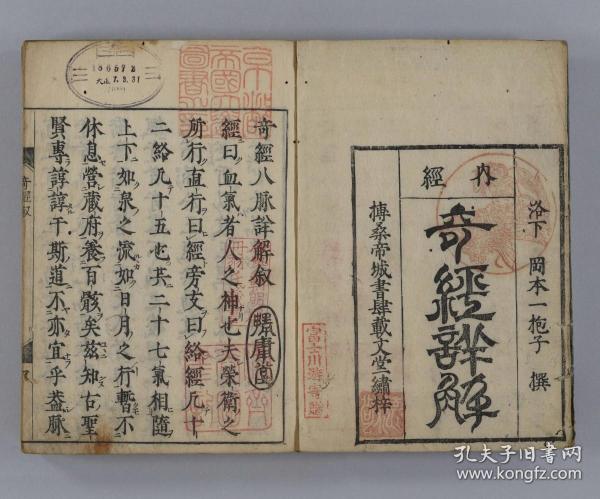 洛下 岡本一抱子 撰
內經
奇經詳解
摶桑帝城書肆載文堂繡梓
富士川游寄贈
奇經八脉詳解叙
經曰血氣者人之神也夫榮衛之
所行直行曰經旁支曰絡經凡十
二絡凡十五也共二十七氣相隨
上下如泉之流如日月之行暫不
休息營藏府養百骸矣兹知古聖
賢專諄諄于斯道不亦宜乎葢脉
奇經叙
京都
帝國大
圖書
186572
大正7.3.31
孔夫子旧书网
www.kongfz.com